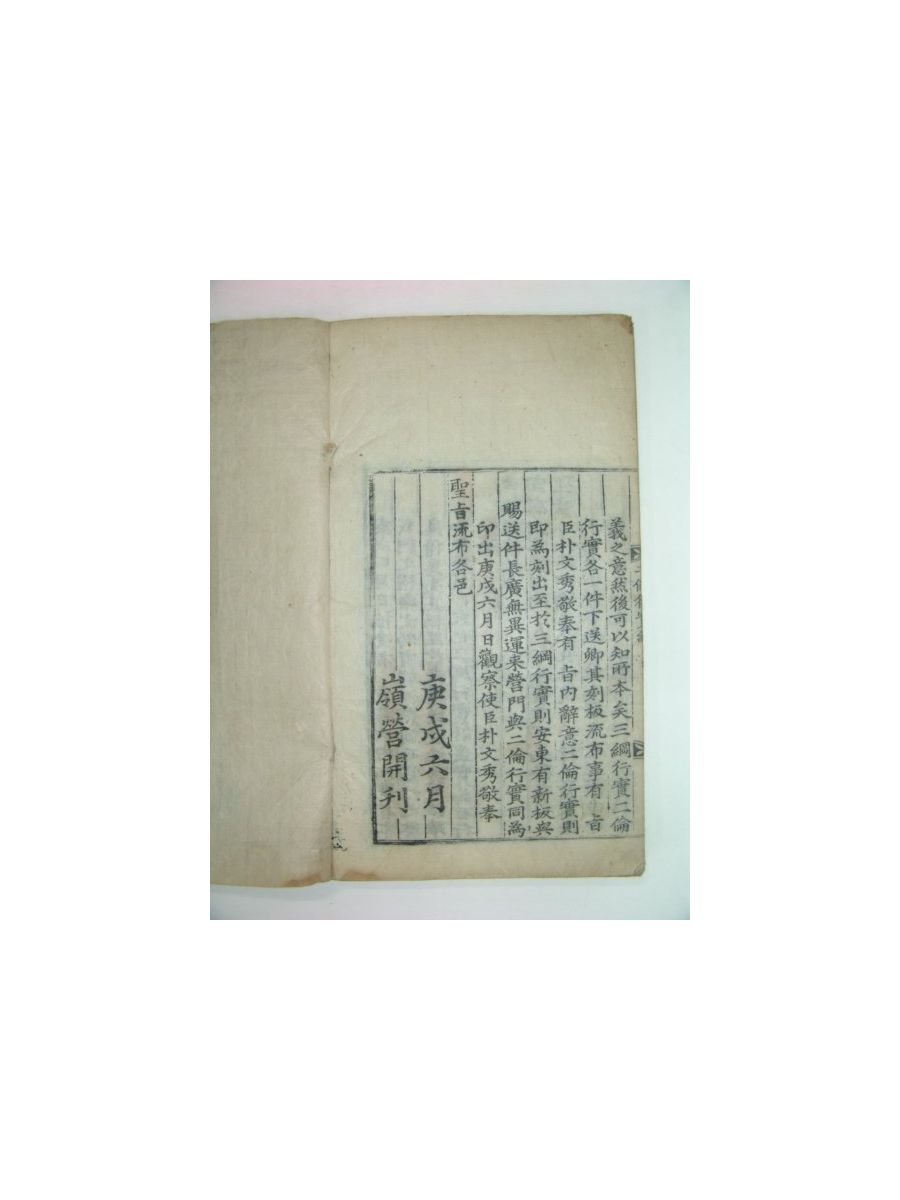 義之意然後可以知所本矣三綱行實二倫
行實各一件下送卿其刻板流布事有 旨
臣朴文秀敬奉有 旨內辭意二倫行實則
即爲刻出至於三綱行實則安東有新板與
賜送件長廣無異運來營門與二倫行實同爲
印出庚戌六月日觀察使臣朴文秀敬奉
聖旨流布各邑
庚戌六月
嶺營開刊